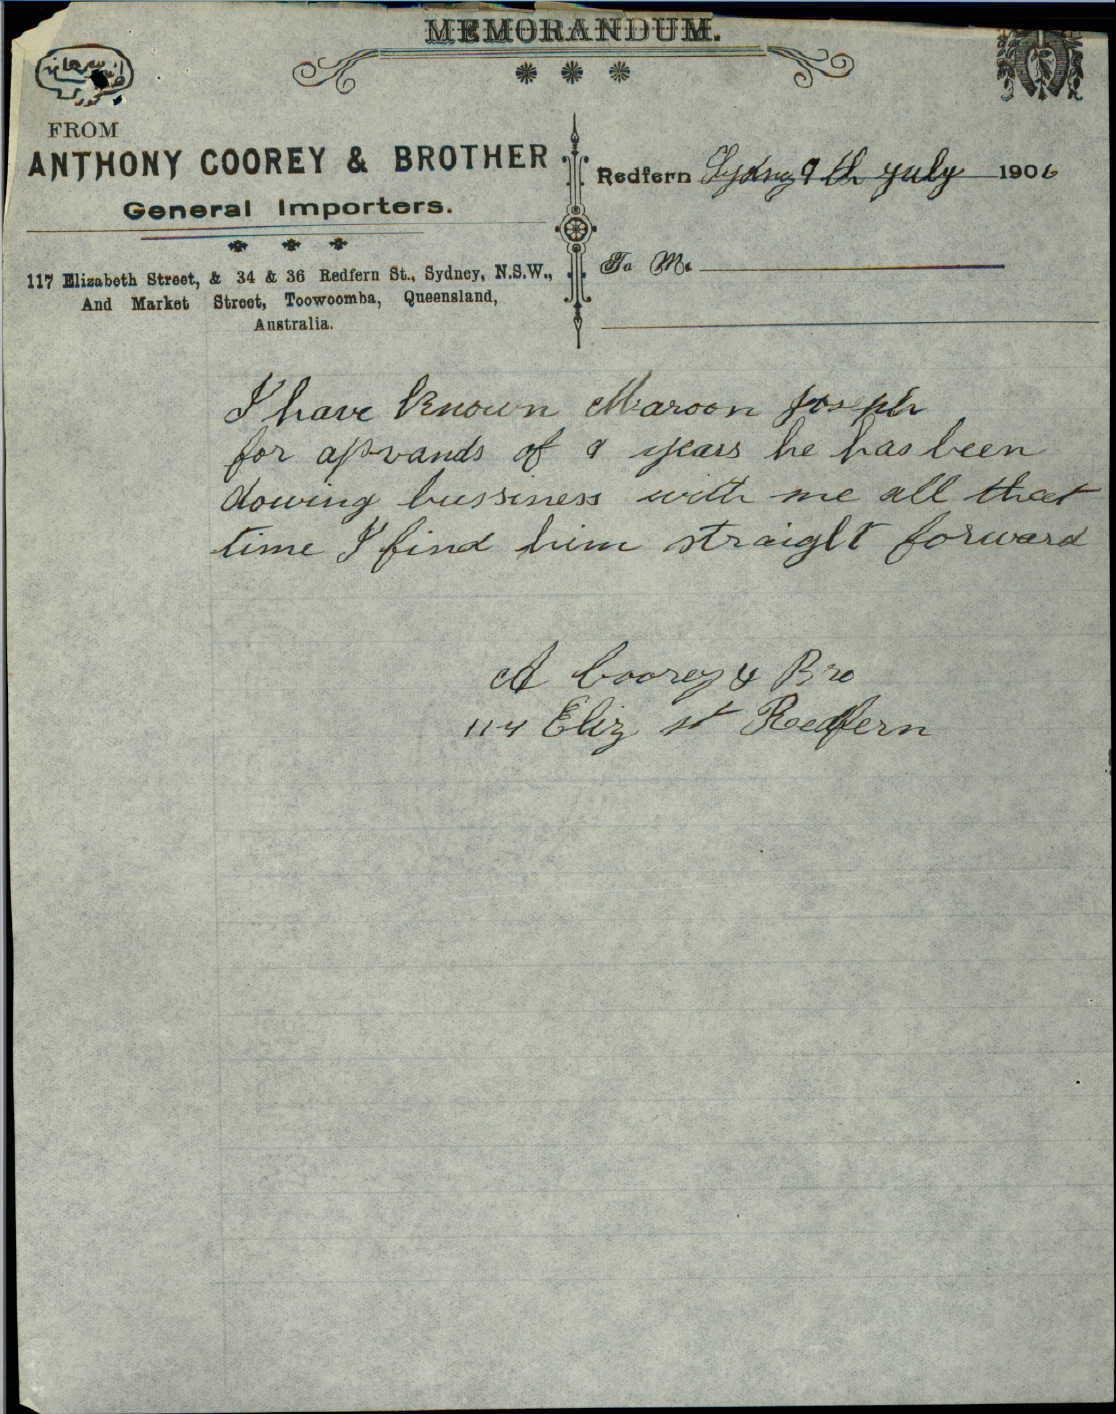 MEMORANDUM.
FROM
ANTHONY COOREY & BROTHER
General Importers.
117 Elizabeth Street, & 34 & 36 Redfern St., Sydney, N.S.W.,
And Market Street, Toowoomba, Queensland,
Australia.
Redfern Sydney 9th July 1906
To Mr
I have known Maroon Joseph
for apvands of 9 years he has been
dowing bussiness with me all that
time I find him straight forward
A Coorey & Bro
Eliz st Redfern